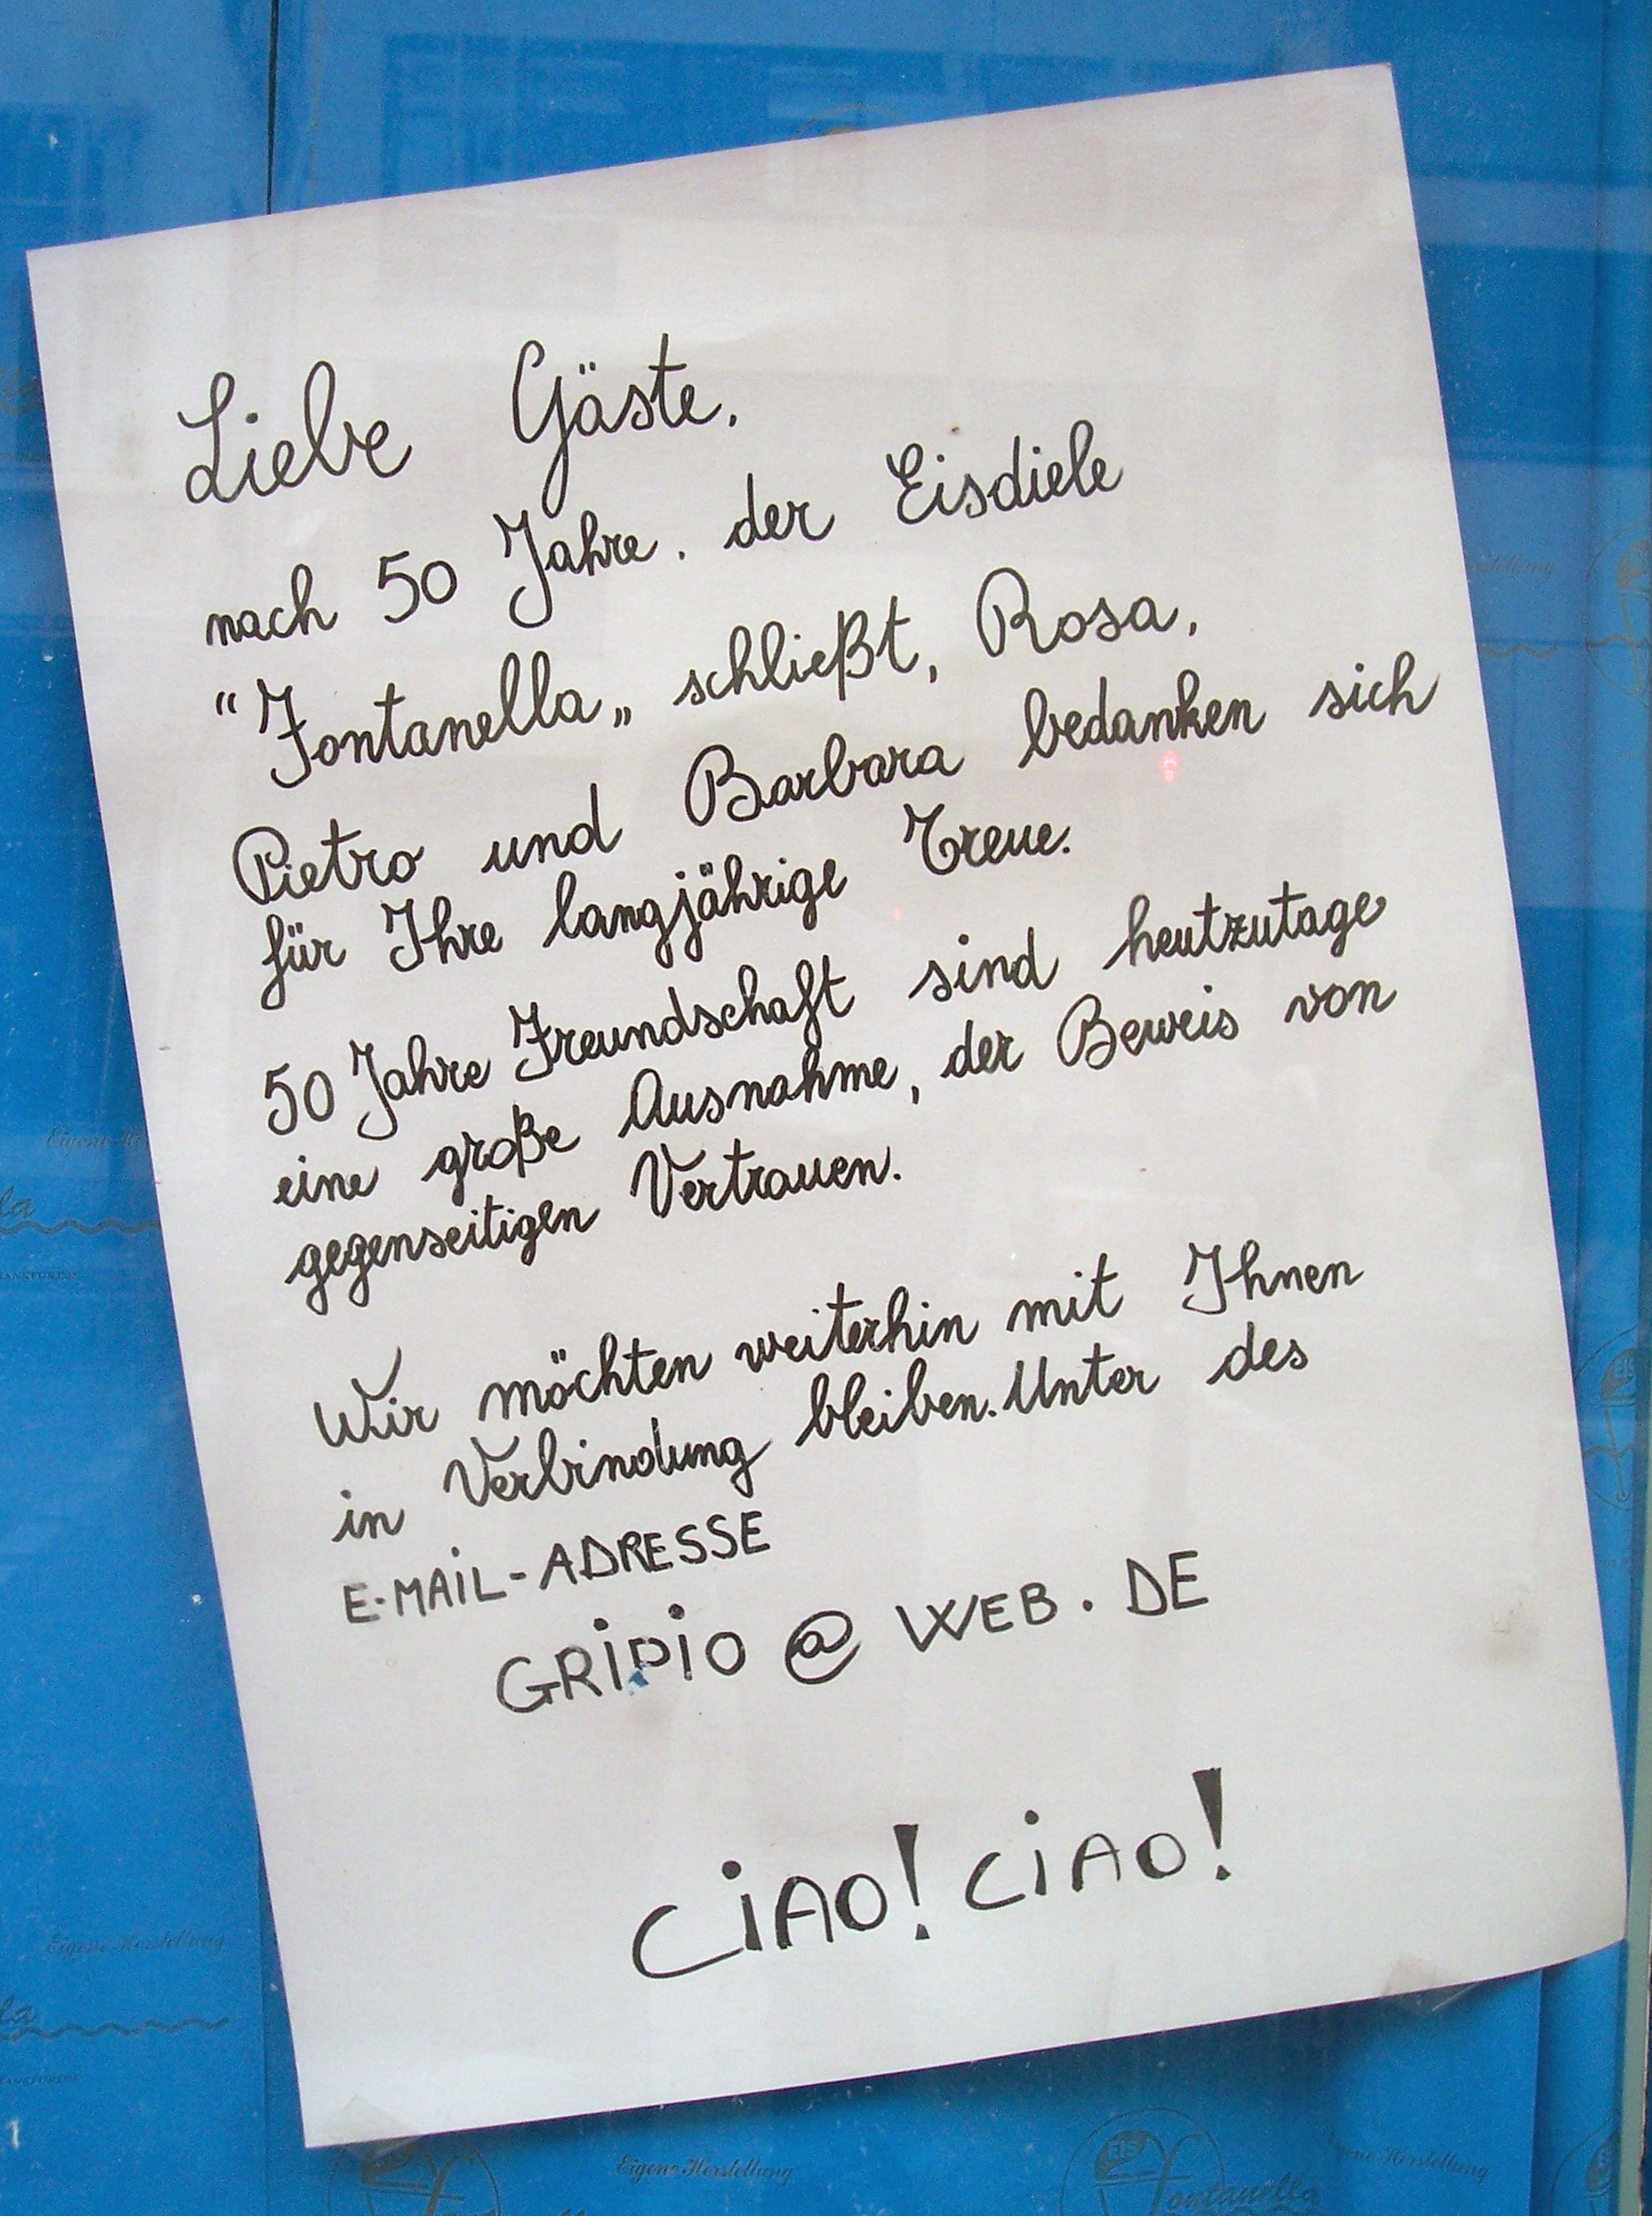 Liebe Gäste,
nach 50 Jahre. der Eisdiele
"Fontanella„ schließt, Rosa,
Pietro und Barbara bedanken sich
für Ihre langjährige Treue.
50 Jahre Freundschaft sind heutzutage
eine große Ausnahme, der Beweis von
gegenseitigen Vertrauen.
Wir möchten weiterhin mit Ihnen
in Verbindung bleiben. Unter des
E-MAIL-ADRESSE
GRIPIO @ WEB. DE
CIAO! CIAO!
Eigene Herstellung
Eigene Herstellung
EIS
Fontanella